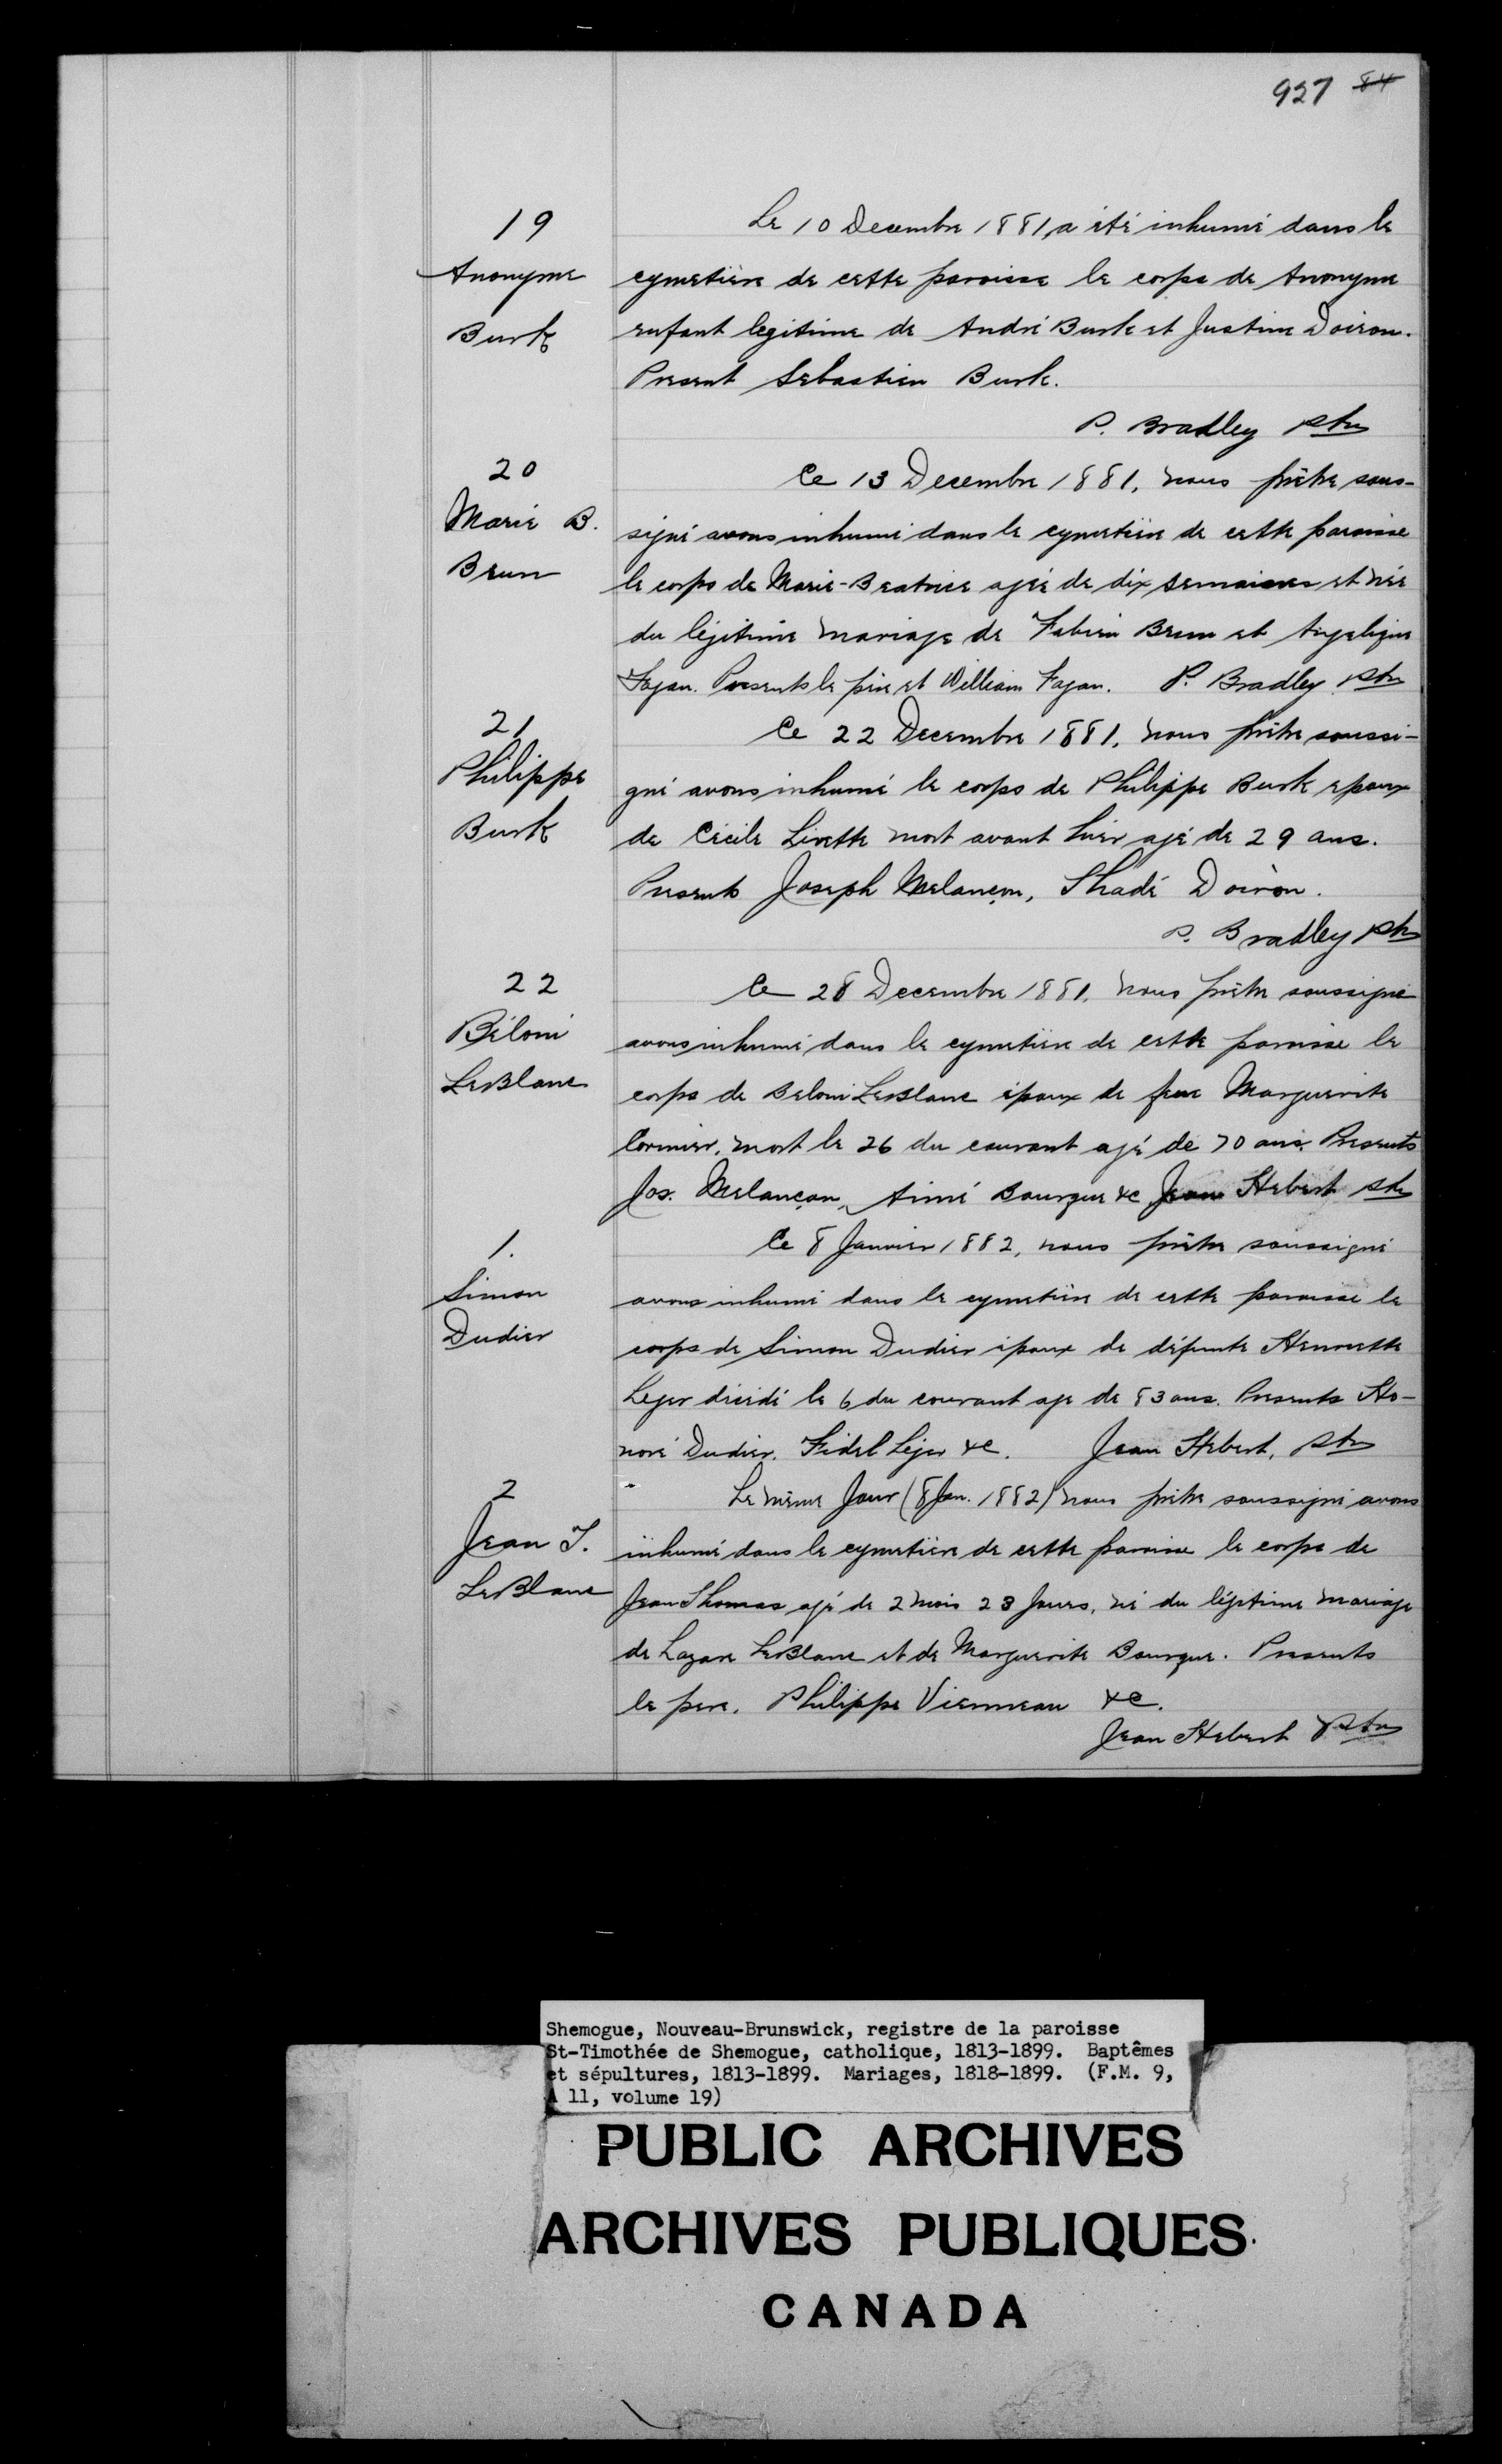 927 84
19
Anonyme
Burk
Le 10 Decembre 1881, a été inhumé dans le
cymetière de cette paroisse le corps de Anonyme
enfant legitime de André Burk et Justine Doiron.
Present Sebastien Burk.
P. Bradley ptre
20
Marie B.
Brun
Ce 13 Decembre 1881, nous prêtre sous-
signé avons inhumé dans le cymetière de cette paroisse
le corps de Marie-Beatrice agée de dix semaines et née
du légitime mariage de Fabien Brun et Angelique
Fagan. Presents le père et William Fagan. P. Bradley ptre
21
Philippe
Burk
Ce 22 Decembre 1881, nous prêtre soussi-
gné avons inhumé le corps de Philippe Burk epoux
de Cécile Livette mort avant hier agé de 29 ans.
Presents Joseph Melançon, Thadé Doiron.
P. Bradley ptre
22
Béloni
LeBlanc
Ce 28 Decembre 1881, nous prêtre soussigné
avons inhumé dans le cymetière de cette paroisse le
corps de Beloni LeBlanc époux de feue Marguerite
Cormier, mort le 26 du courant agé de 70 ans. Presents
Jos. Melançon, Aimé Bourque &c Jean Hebert ptre
1.
Simon
Dudier
Ce 8 Janvier 1882, nous prêtre soussigné
avons inhumé dans le cymetière de cette paroisse le
corps de Simon Dudier époux de défunte Henriette
Leger décédé le 6 du courant age de 83 ans. Presents Ho-
noré Dudier, Fidel Léger &c. Jean Hebert, ptre
2
Jean T.
LeBlanc
Le même Jour (8 Jan. 1882) nous prêtre soussigné avons
inhumé dans le cymetière de cette paroisse le corps de
Jean Thomas agé de 2 mois 23 Jours, né du légitime mariage
de Lazare LeBlanc et de Marguerite Bourque. Presents
le pere, Philippe Vienneau &c.
Jean Hebert ptre
Shemogue, Nouveau-Brunswick, registre de la paroisse
St-Timothée de Shemogue, catholique, 1813-1899. Baptêmes
et sépultures, 1813-1899. Mariages, 1818-1899. (F.M. 9,
A 11, volume 19)
PUBLIC ARCHIVES
ARCHIVES PUBLIQUES
CANADA